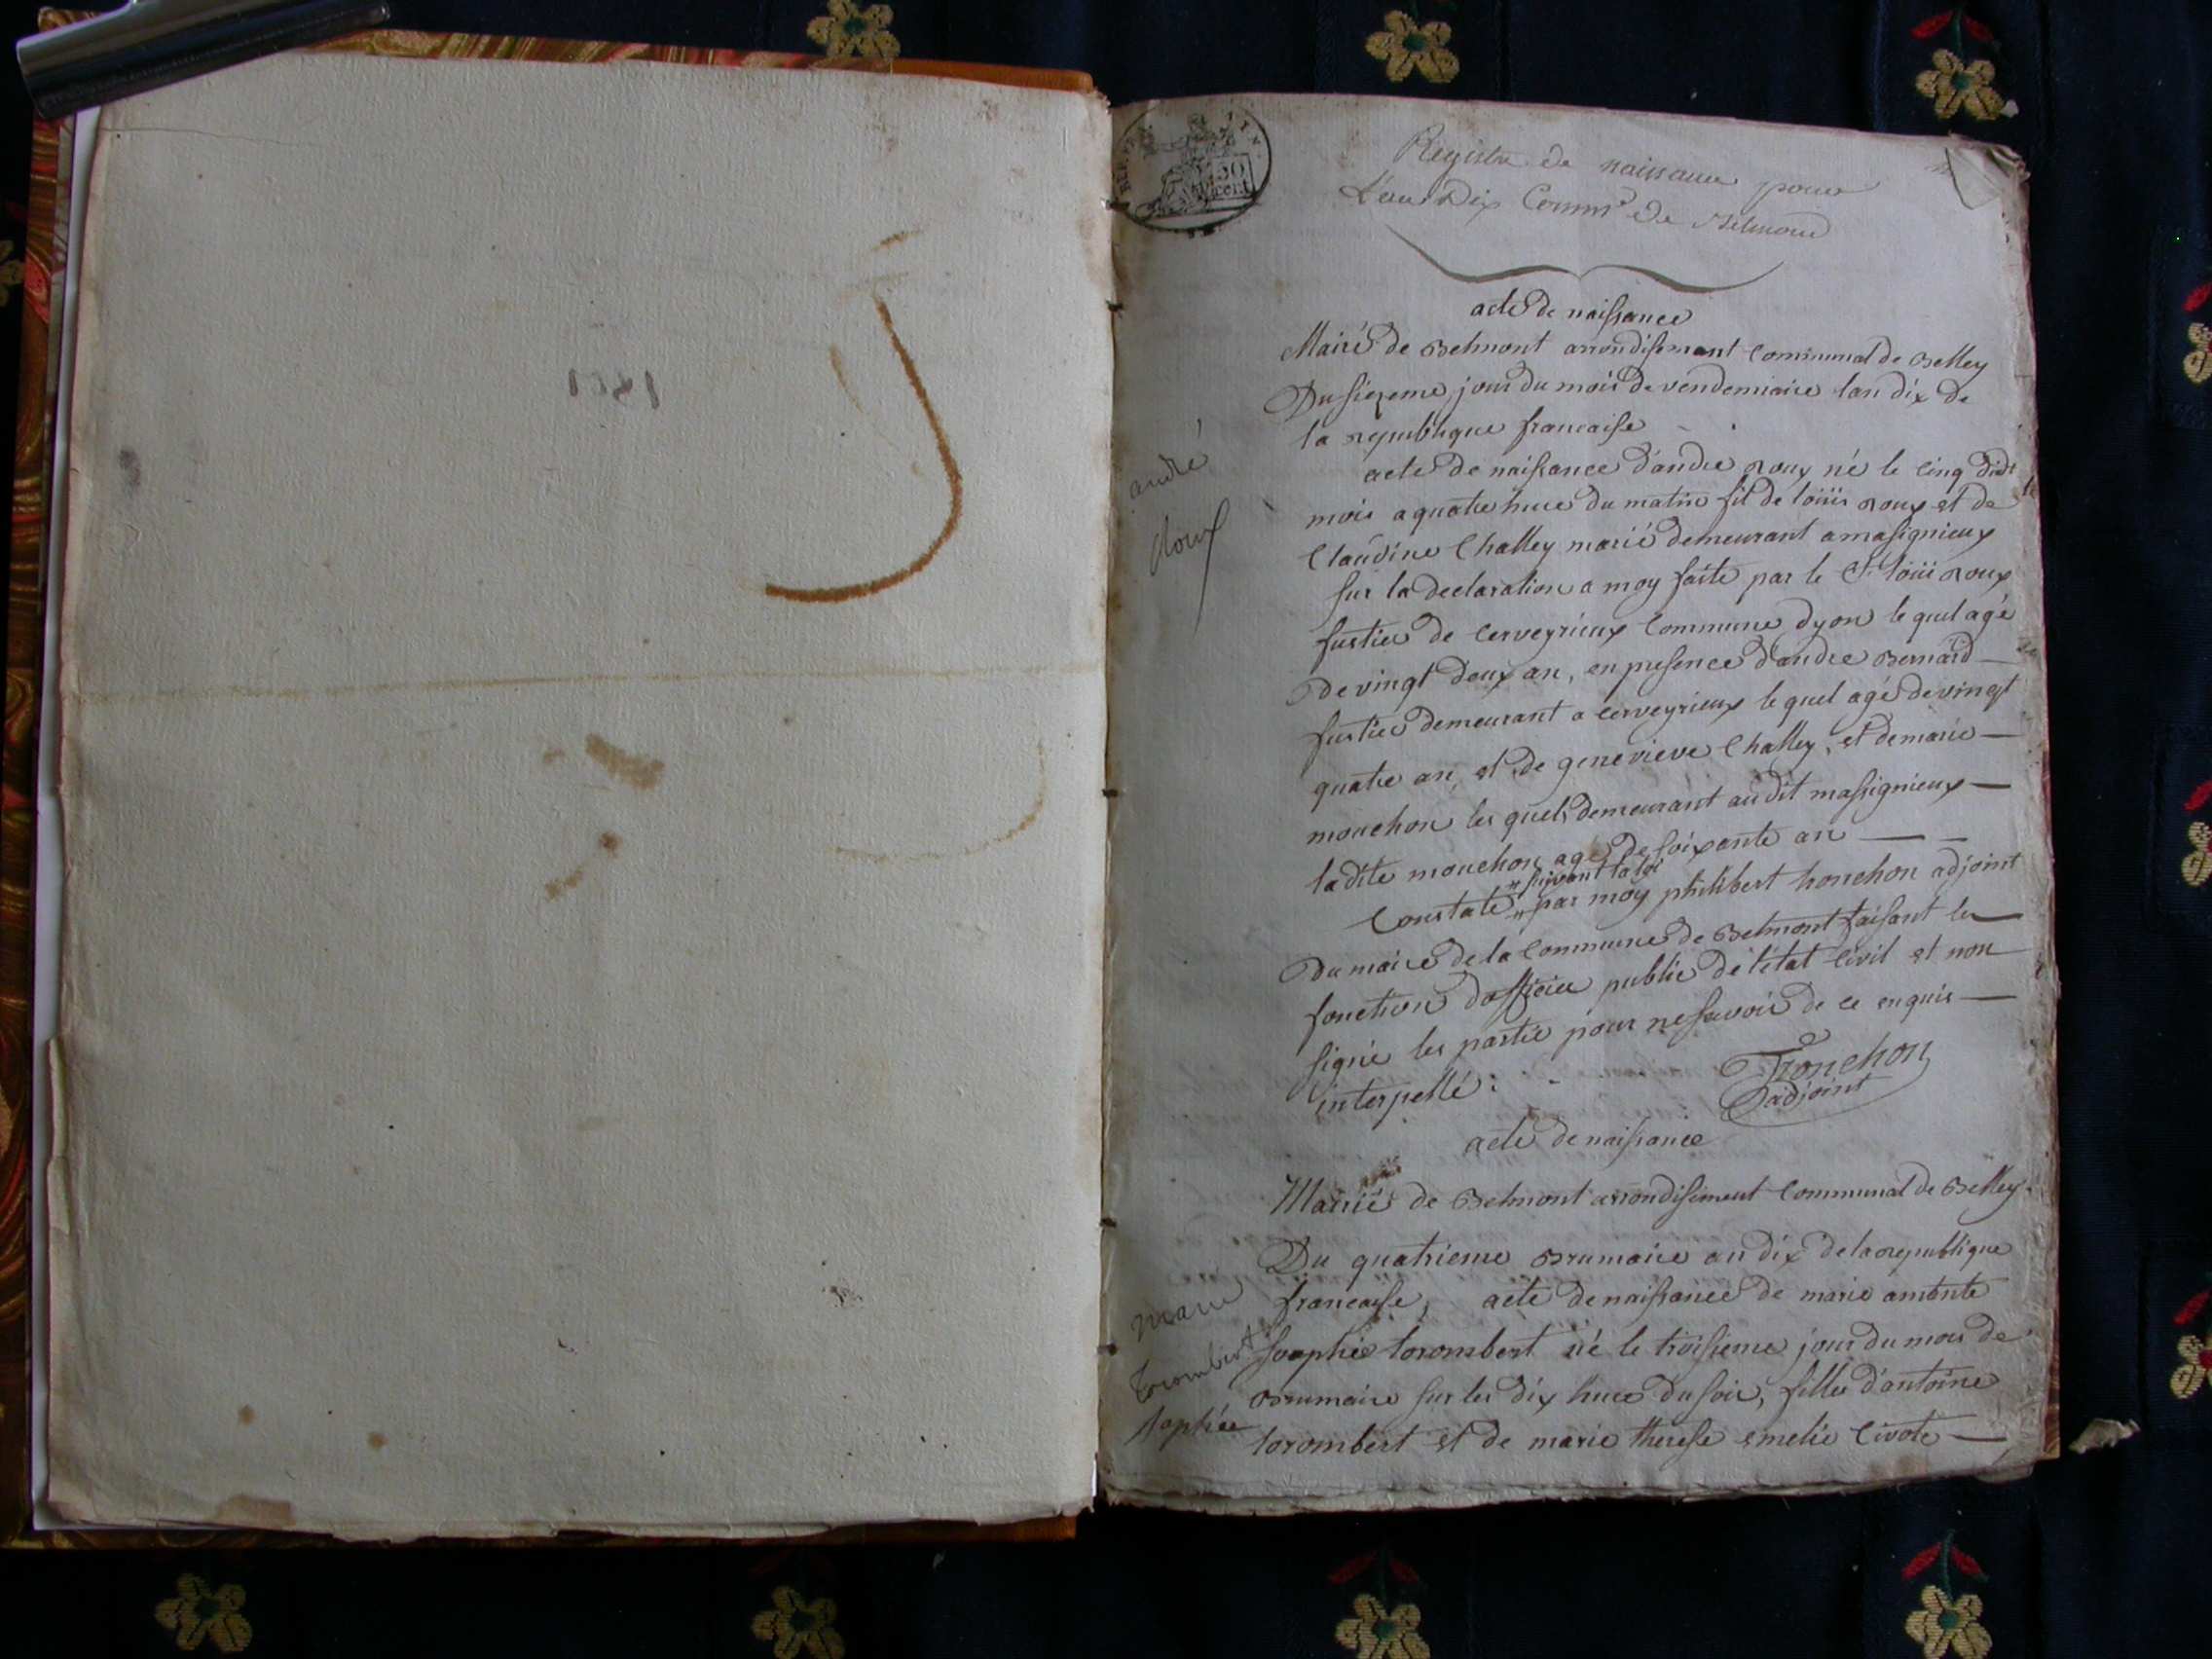 1801
REP. FRA.
50
cent
Registre de naissance pour
L'an Dix Comm.e de Belmont
acte de naissance
Mairie de Belmont arrondisement Communal de Belley
Du sizeme jour du mois de vendemiaire lan dix de
la republique francaise
acte de naissance d'andre roux né le cinq dudt
mois a quatre heure du matin fil de loüis roux et de
Claudine Challey marié demeurant a masignieux
sur la declaration a moy faite par le Sr loüi roux
fustier de Cerveyrieux Commune dyon le quel agé
de vingt deux an, en presence d'andre Bernard
fustier demeurant a cerveyrieux le quel agé de vingt
quatre an, et de genevieve Challey, et de marie
mouchon les quels demeurant au dit massignieux
ladite mouchon agé de soixante an
" suivant la loi
Constaté " par moy philibert honchon adjoint
Du maire de la Commune de Belmont faisant les
fonction dofficier public de l'état Civil et non
signé les partie pour ne savoir de ce enquis
interpellé :
Tronchon
adjoint
andré
Roux
acte de naissance
Mairie de Belmont arrondisement Communal de Belley
Du quatrieme Brumaire an dix de la republique
francaise, acte de naissance de marie
soophie torombert né le troisieme jour du mois de
Brumaire sur les dix heure du soir, fille d'antoine
torombert et de marie therese emelie Civote
marie
torombert
sophie